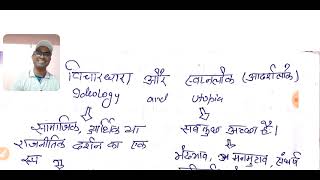 विचारधारा और स्वप्नलोक (आदर्शलोक)
Ideology and utopia
सामाजिक, आर्थिक या
राजनीतिक दर्शन का एक
रूप
सब कुछ अच्छा है।
भेदभाव, मनमुटाव, संघर्ष